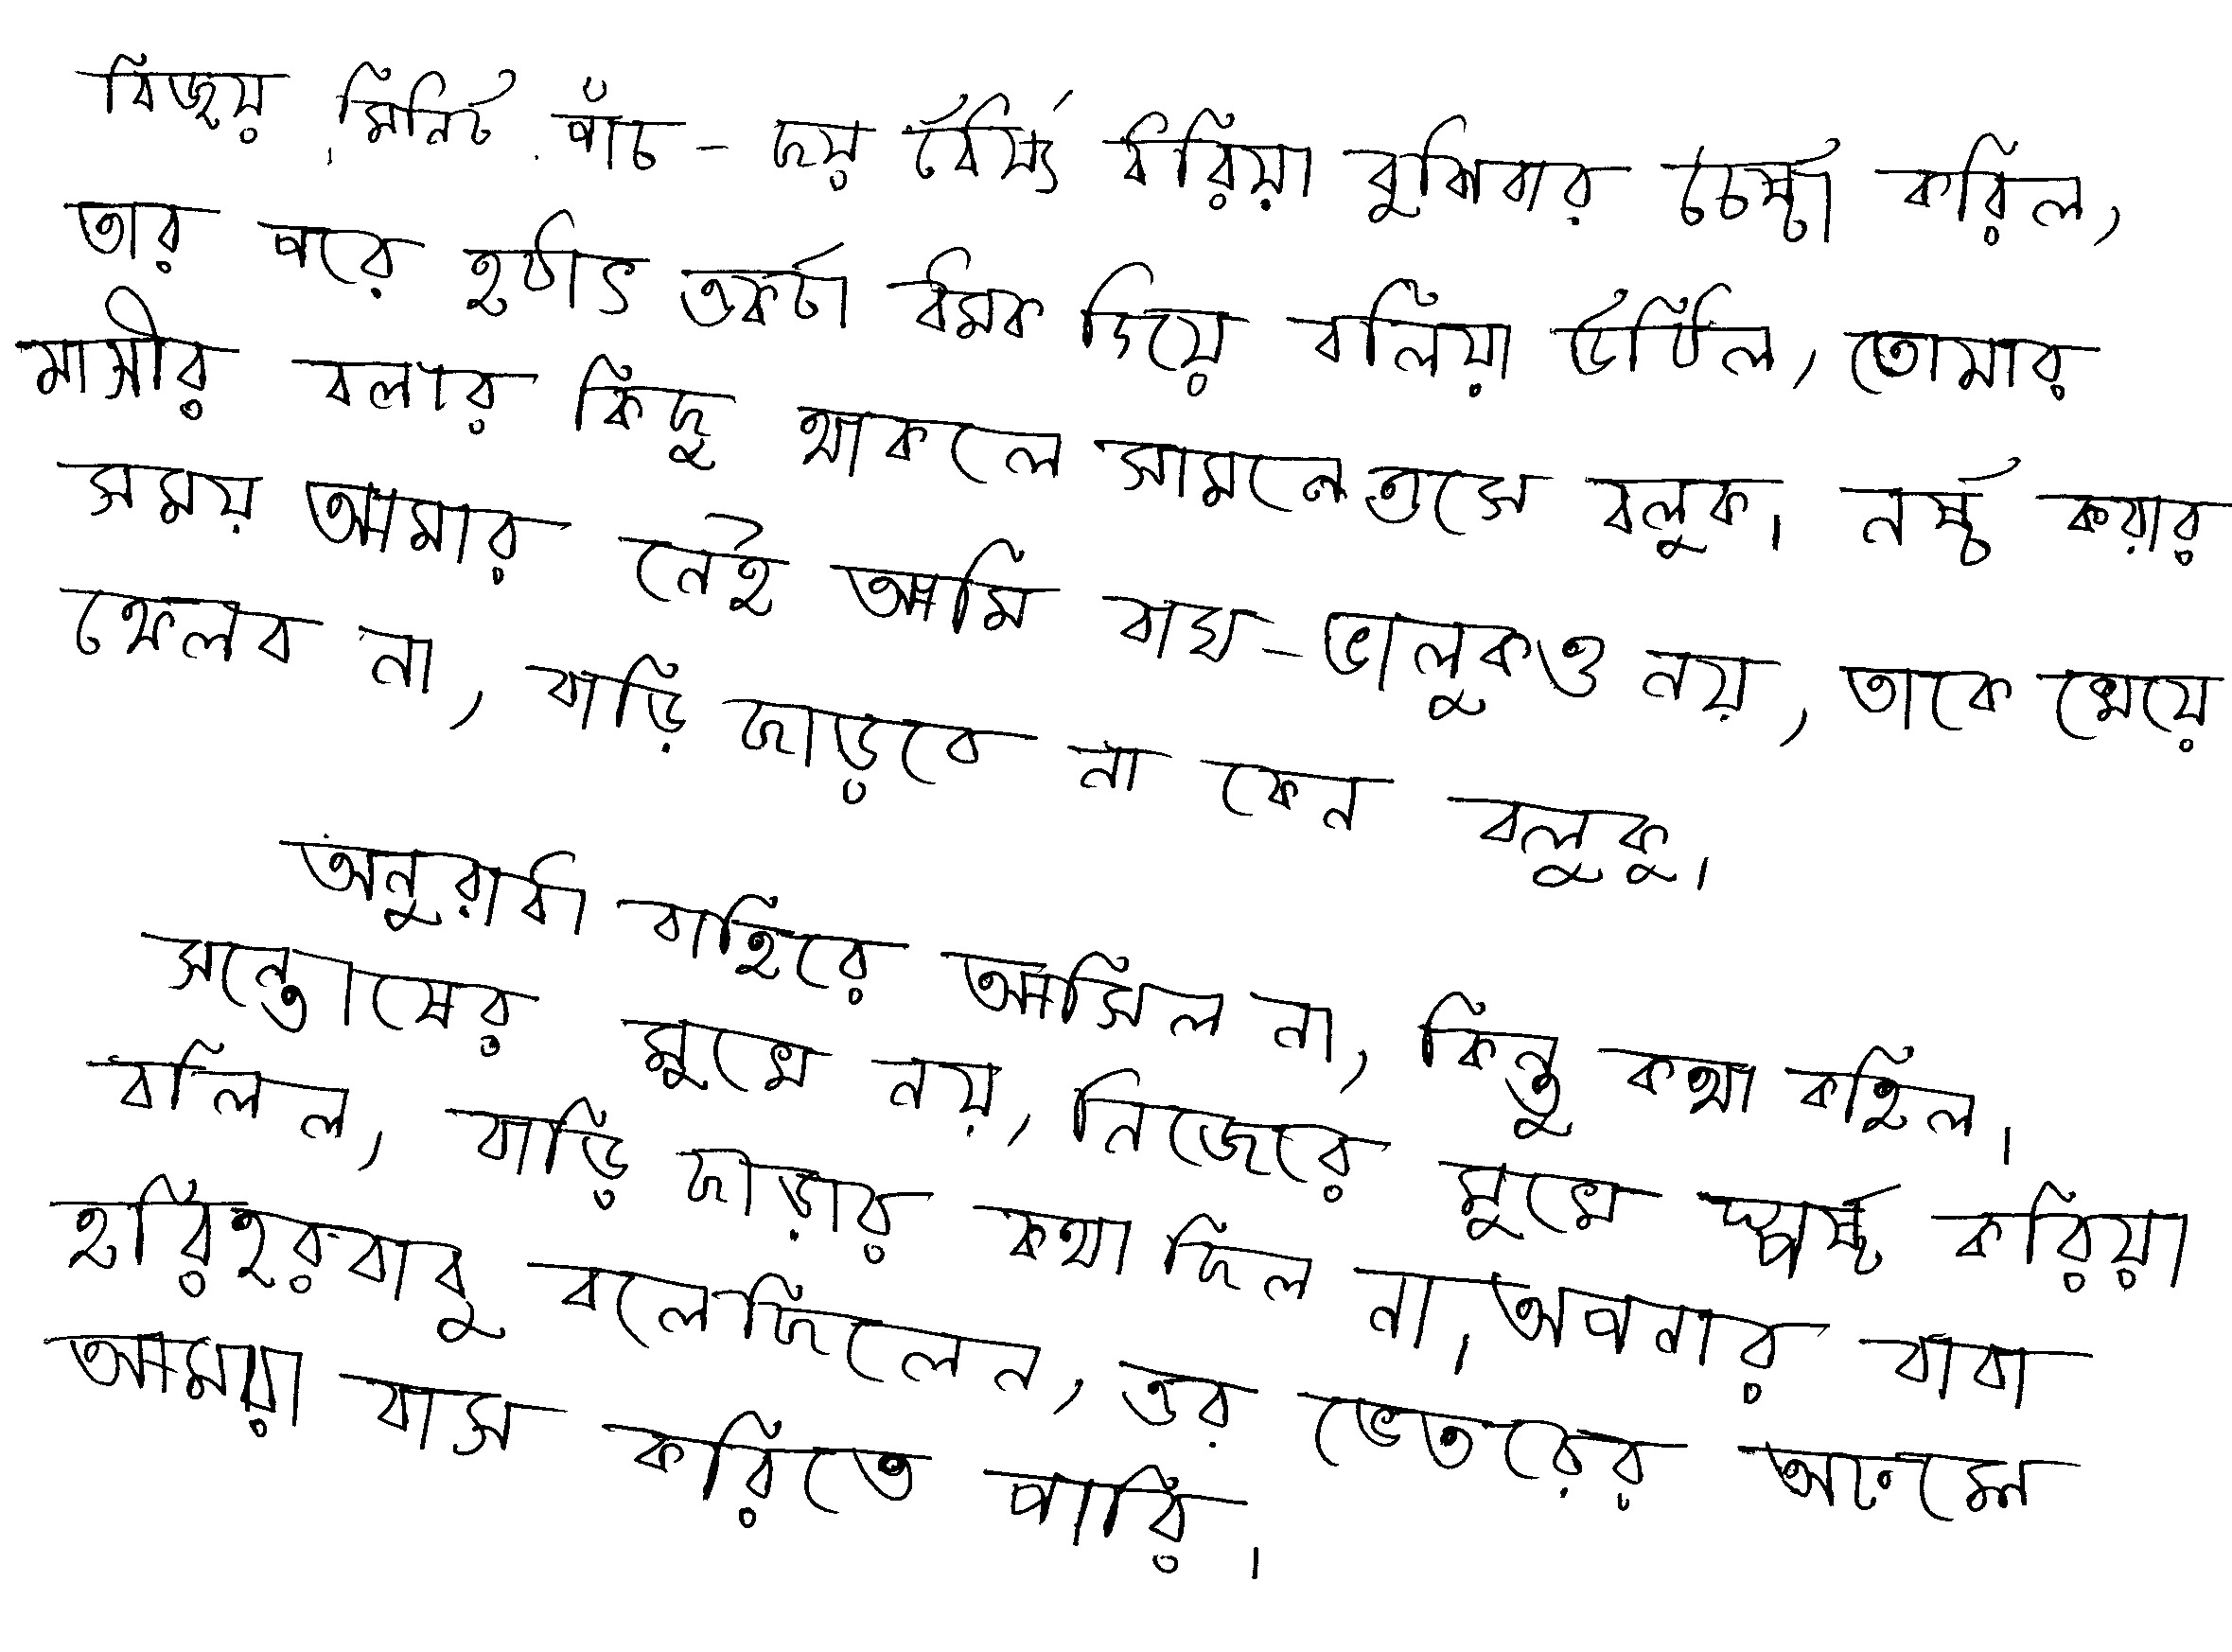 বিজয় মিনিট পাঁচ-ছয় ধৈর্য্য ধরিয়া বুঝিবার চেষ্টা করিল,
তার পরে হঠাৎ একটা ধমক দিয়ে বলিয়া উঠিল, তোমার
মাসীর বলার কিছু থাকলে সামনে এসে বলুক। নষ্ট করার
সময় আমার নেই আমি বাঘ-ভালুকও নয়, তাকে খেয়ে
ফেলব না, বাড়ি ছাড়বে না কেন বলুক।
অনুরাধা বাহিরে আসিল না, কিন্তু কথা কহিল।
সন্তোষের মুখে নয়, নিজের মুখে স্পষ্ট করিয়া
বলিল, বাড়ি ছাড়ার কথা ছিল না। আপনার বাবা
হরিহরবাবু বলেছিলেন, এর ভেতরের অংশে
আমরা বাস করিতে পারি।